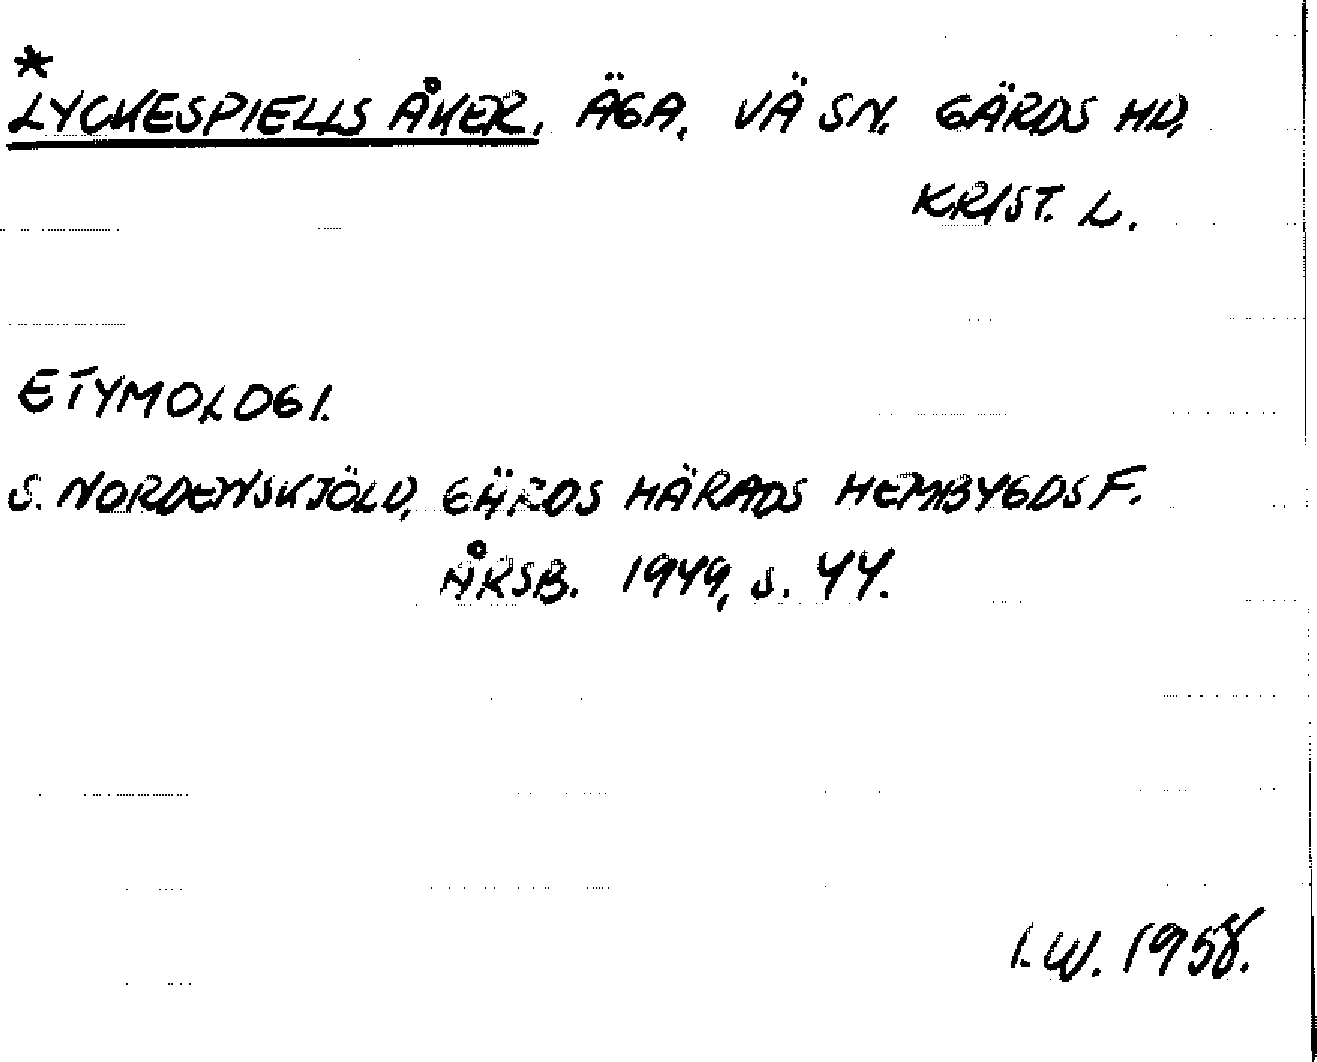 *
LYCKESPIELLS ÅKER, ÄGA, VÄ SN. GÄRDS HD,
KRIST. L.
ETYMOLOGI.
S. NORDENSKJÖLD, GÄRDS HÄRADS HEMBYGDSF.
ÅRSB. 1949, s. 44.
I.W. 1958.